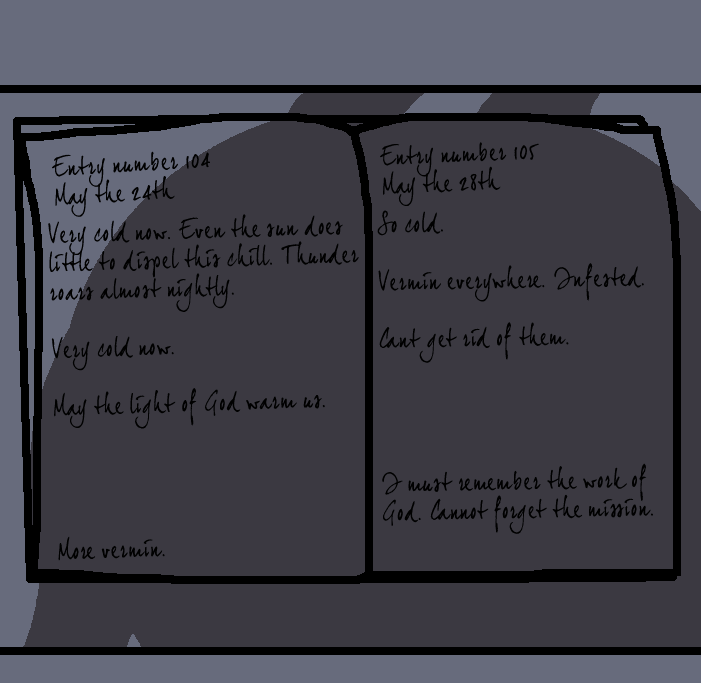 Entry number 104
May the 24th
Very cold now. Even the sun does
little to dispel this chill. Thunder
roars almost nightly.
Very cold now.
May the light of God warm us.
More vermin.
Entry number 105
May the 28th
So cold.
Vermin everywhere. Infested.
Cant get rid of them.
I must remember the work of
God. Cannot forget the mission.